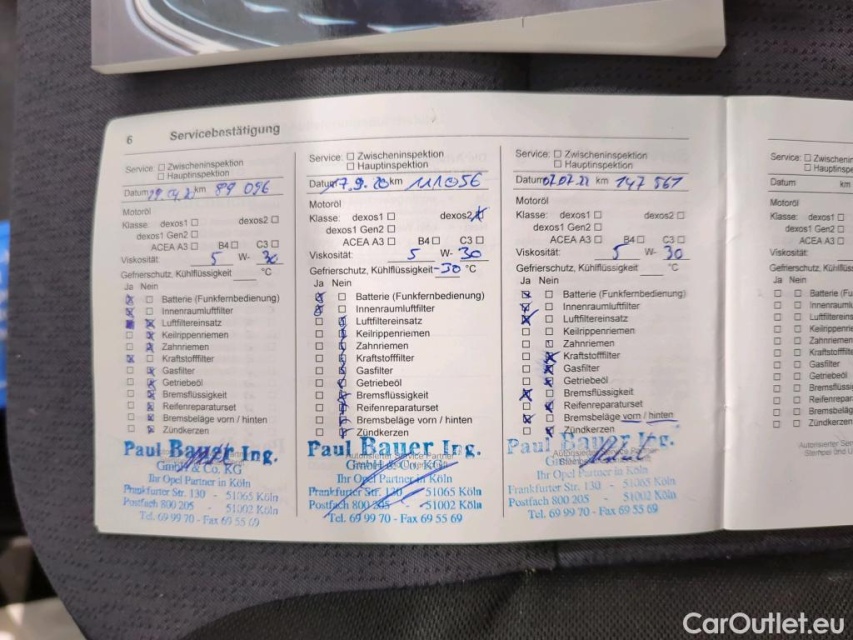 6 Servicebestätigung
Service: ☐ Zwischeninspektion
☐ Hauptinspektion
Datum km 89 096
Motoröl
Klasse: dexos1 ☐ dexos2 ☐
dexos1 Gen2 ☐
ACEA A3 ☐ B4 ☐ C3 ☐
Viskosität: 5 W- 30
Gefrierschutz, Kühlflüssigkeit °C
Ja Nein
☒ ☐ Batterie (Funkfernbedienung)
☒ ☐ Innenraumluftfilter
☒ ☒ Luftfiltereinsatz
☐ ☒ Keilrippenriemen
☐ ☒ Zahnriemen
☒ ☐ Kraftstofffilter
☐ ☒ Gasfilter
☐ ☒ Getriebeöl
☐ ☒ Bremsflüssigkeit
☐ ☒ Reifenreparaturset
☐ ☒ Bremsbeläge vorn / hinten
☐ ☒ Zündkerzen
Paul Bauer Ing.
GmbH & Co. KG
Ihr Opel Partner in Köln
Frankfurter Str. 130 - 51065 Köln
Postfach 800 205 - 51002 Köln
Tel. 69 99 70 - Fax 69 55 69
Service: ☐ Zwischeninspektion
☐ Hauptinspektion
Datum 17.9.20 km 111056
Motoröl
Klasse: dexos1 ☐ dexos2 ☒
dexos1 Gen2 ☐
ACEA A3 ☐ B4 ☐ C3 ☐
Viskosität: 5 W- 30
Gefrierschutz, Kühlflüssigkeit -30 °C
Ja Nein
☒ ☐ Batterie (Funkfernbedienung)
☒ ☐ Innenraumluftfilter
☐ ☒ Luftfiltereinsatz
☐ ☒ Keilrippenriemen
☐ ☒ Zahnriemen
☐ ☒ Kraftstofffilter
☐ ☒ Gasfilter
☐ ☒ Getriebeöl
☐ ☒ Bremsflüssigkeit
☐ ☒ Reifenreparaturset
☐ ☒ Bremsbeläge vorn / hinten
☐ ☒ Zündkerzen
Paul Bauer Ing.
Autorisierter Service Partner
GmbH & Co. KG
Ihr Opel Partner in Köln
Frankfurter Str. 130 - 51065 Köln
Postfach 800 205 - 51002 Köln
Tel. 69 99 70 - Fax 69 55 69
Service: ☐ Zwischeninspektion
☐ Hauptinspektion
Datum 07.07.22 km 147 561
Motoröl
Klasse: dexos1 ☐ dexos2 ☐
dexos1 Gen2 ☐
ACEA A3 ☐ B4 ☐ C3 ☐
Viskosität: 5 W- 30
Gefrierschutz, Kühlflüssigkeit °C
Ja Nein
☒ ☐ Batterie (Funkfernbedienung)
☒ ☐ Innenraumluftfilter
☒ ☐ Luftfiltereinsatz
☐ ☐ Keilrippenriemen
☐ ☐ Zahnriemen
☐ ☒ Kraftstofffilter
☐ ☒ Gasfilter
☐ ☒ Getriebeöl
☒ ☐ Bremsflüssigkeit
☐ ☒ Reifenreparaturset
☒ ☐ Bremsbeläge vorn / hinten
☐ ☒ Zündkerzen
Paul Bauer Ing.
GmbH & Co. KG
Ihr Opel Partner in Köln
Frankfurter Str. 130 - 51065 Köln
Postfach 800 205 - 51002 Köln
Tel. 69 99 70 - Fax 69 55 69
Service: ☐ Zwischenin
☐ Hauptinsp
Datum km
Motoröl
Klasse: dexos1 ☐
dexos1 Gen2 ☐
ACEA A3 ☐
Viskosität:
Gefrierschutz, Kühlflüssi
Ja Nein
☐ ☐ Batterie (Fu
☐ ☐ Innenraumlu
☐ ☐ Luftfilterein
☐ ☐ Keilrippenri
☐ ☐ Zahnriemen
☐ ☐ Kraftstofffilt
☐ ☐ Gasfilter
☐ ☐ Getriebeöl
☐ ☐ Bremsflüssi
☐ ☐ Reifenrepar
☐ ☐ Bremsbeläg
☐ ☐ Zündkerzen
Autorisierter Ser
CarOutlet.eu